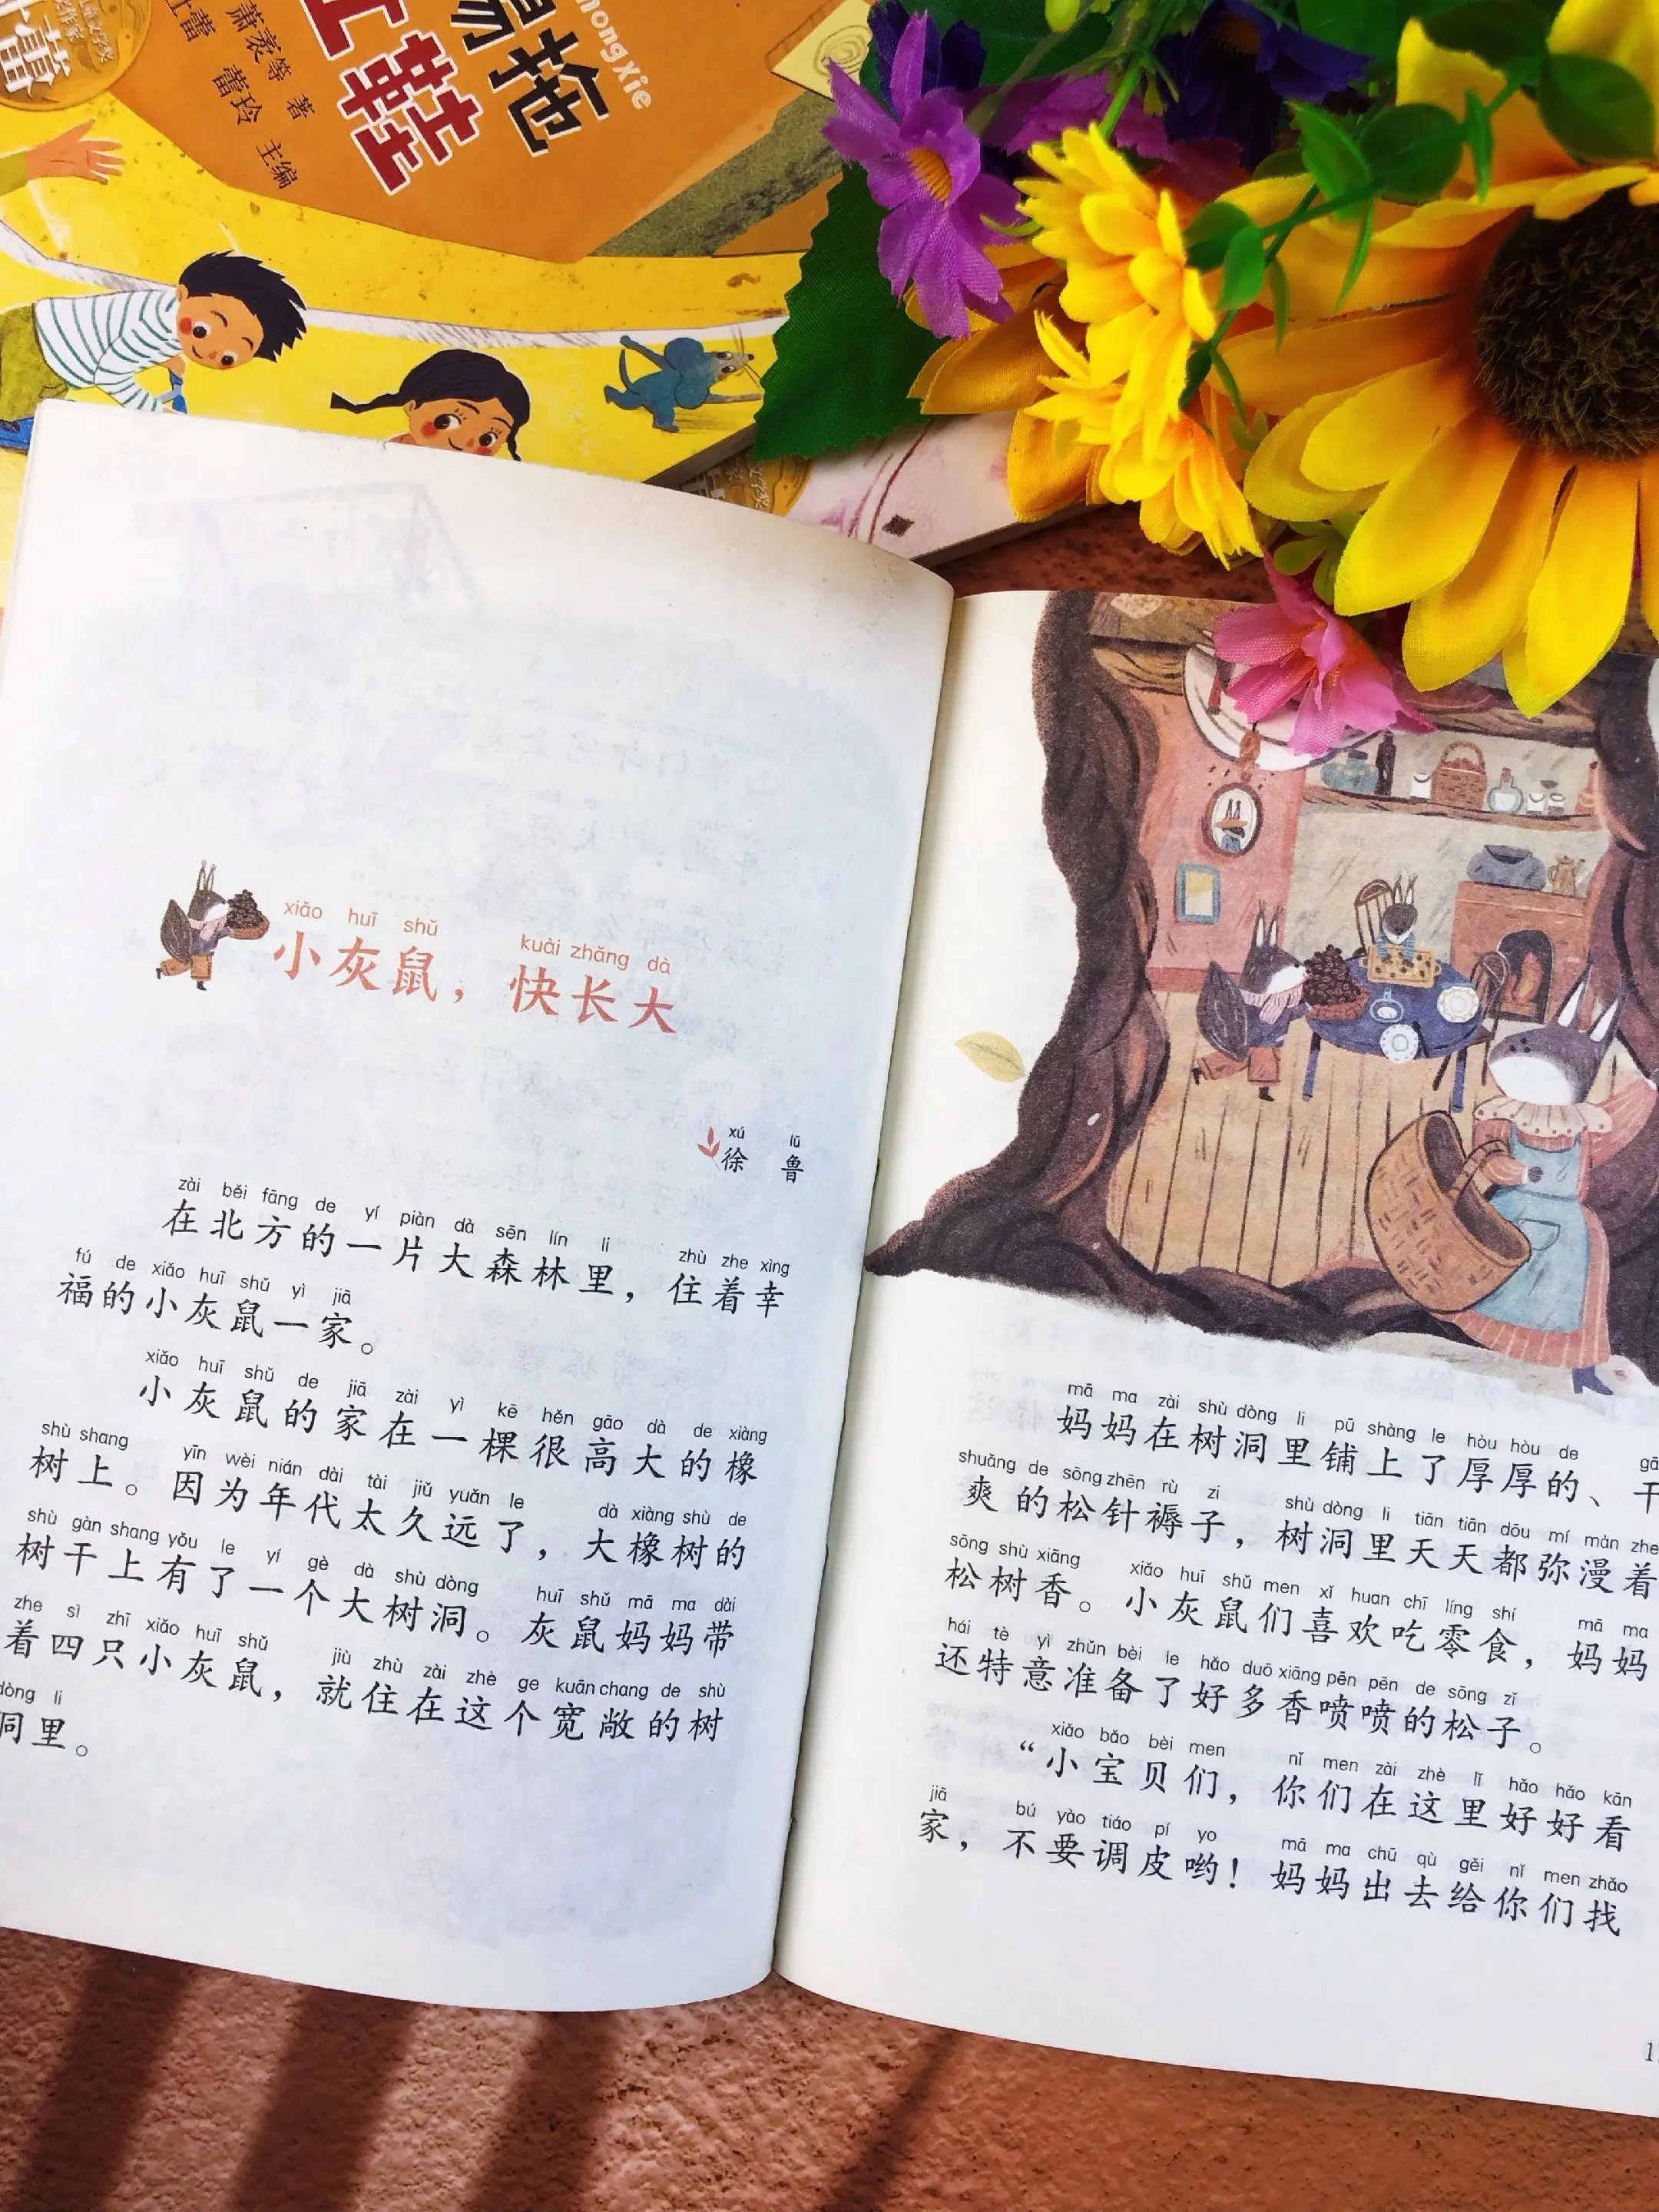 hongXie
易拖
红鞋
萧袤等 著
蕾玲 主编
xiǎo huī shǔ kuài zhǎng dà
小灰鼠，快长大
xú lǔ
徐 鲁
zài běi fāng de yí piàn dà sēn lín li zhù zhe xìng
在北方的一片大森林里，住着幸
fú de xiǎo huī shǔ yì jiā
福的小灰鼠一家。
xiǎo huī shǔ de jiā zài yì kē hěn gāo dà de xiàng
小灰鼠的家在一棵很高大的橡
shù shang yīn wèi nián dài tài jiǔ yuǎn le dà xiàng shù de
树上。因为年代太久远了，大橡树的
shù gàn shang yǒu le yí gè dà shù dòng huī shǔ mā ma dài
树干上有了一个大树洞。灰鼠妈妈带
zhe sì zhī xiǎo huī shǔ jiù zhù zài zhè ge kuān chang de shù
着四只小灰鼠，就住在这个宽敞的树
dòng li
洞里。
mā ma zài shù dòng li pū shàng le hòu hòu de
妈妈在树洞里铺上了厚厚的、干
shuǎng de sōng zhēn rù zi shù dòng li tiān tiān dōu mí màn zhe
爽的松针褥子，树洞里天天都弥漫着
sōng shù xiāng xiǎo huī shǔ men xǐ huan chī líng shí mā ma
松树香。小灰鼠们喜欢吃零食，妈妈
hái tè yì zhǔn bèi le hǎo duō xiāng pēn pēn de sōng zǐ
还特意准备了好多香喷喷的松子。
xiǎo bǎo bèi men nǐ men zài zhè lǐ hǎo hǎo kān
“小宝贝们，你们在这里好好看
jiā bú yào tiáo pí yo mā ma chū qù gěi nǐ men zhǎo
家，不要调皮哟！妈妈出去给你们找